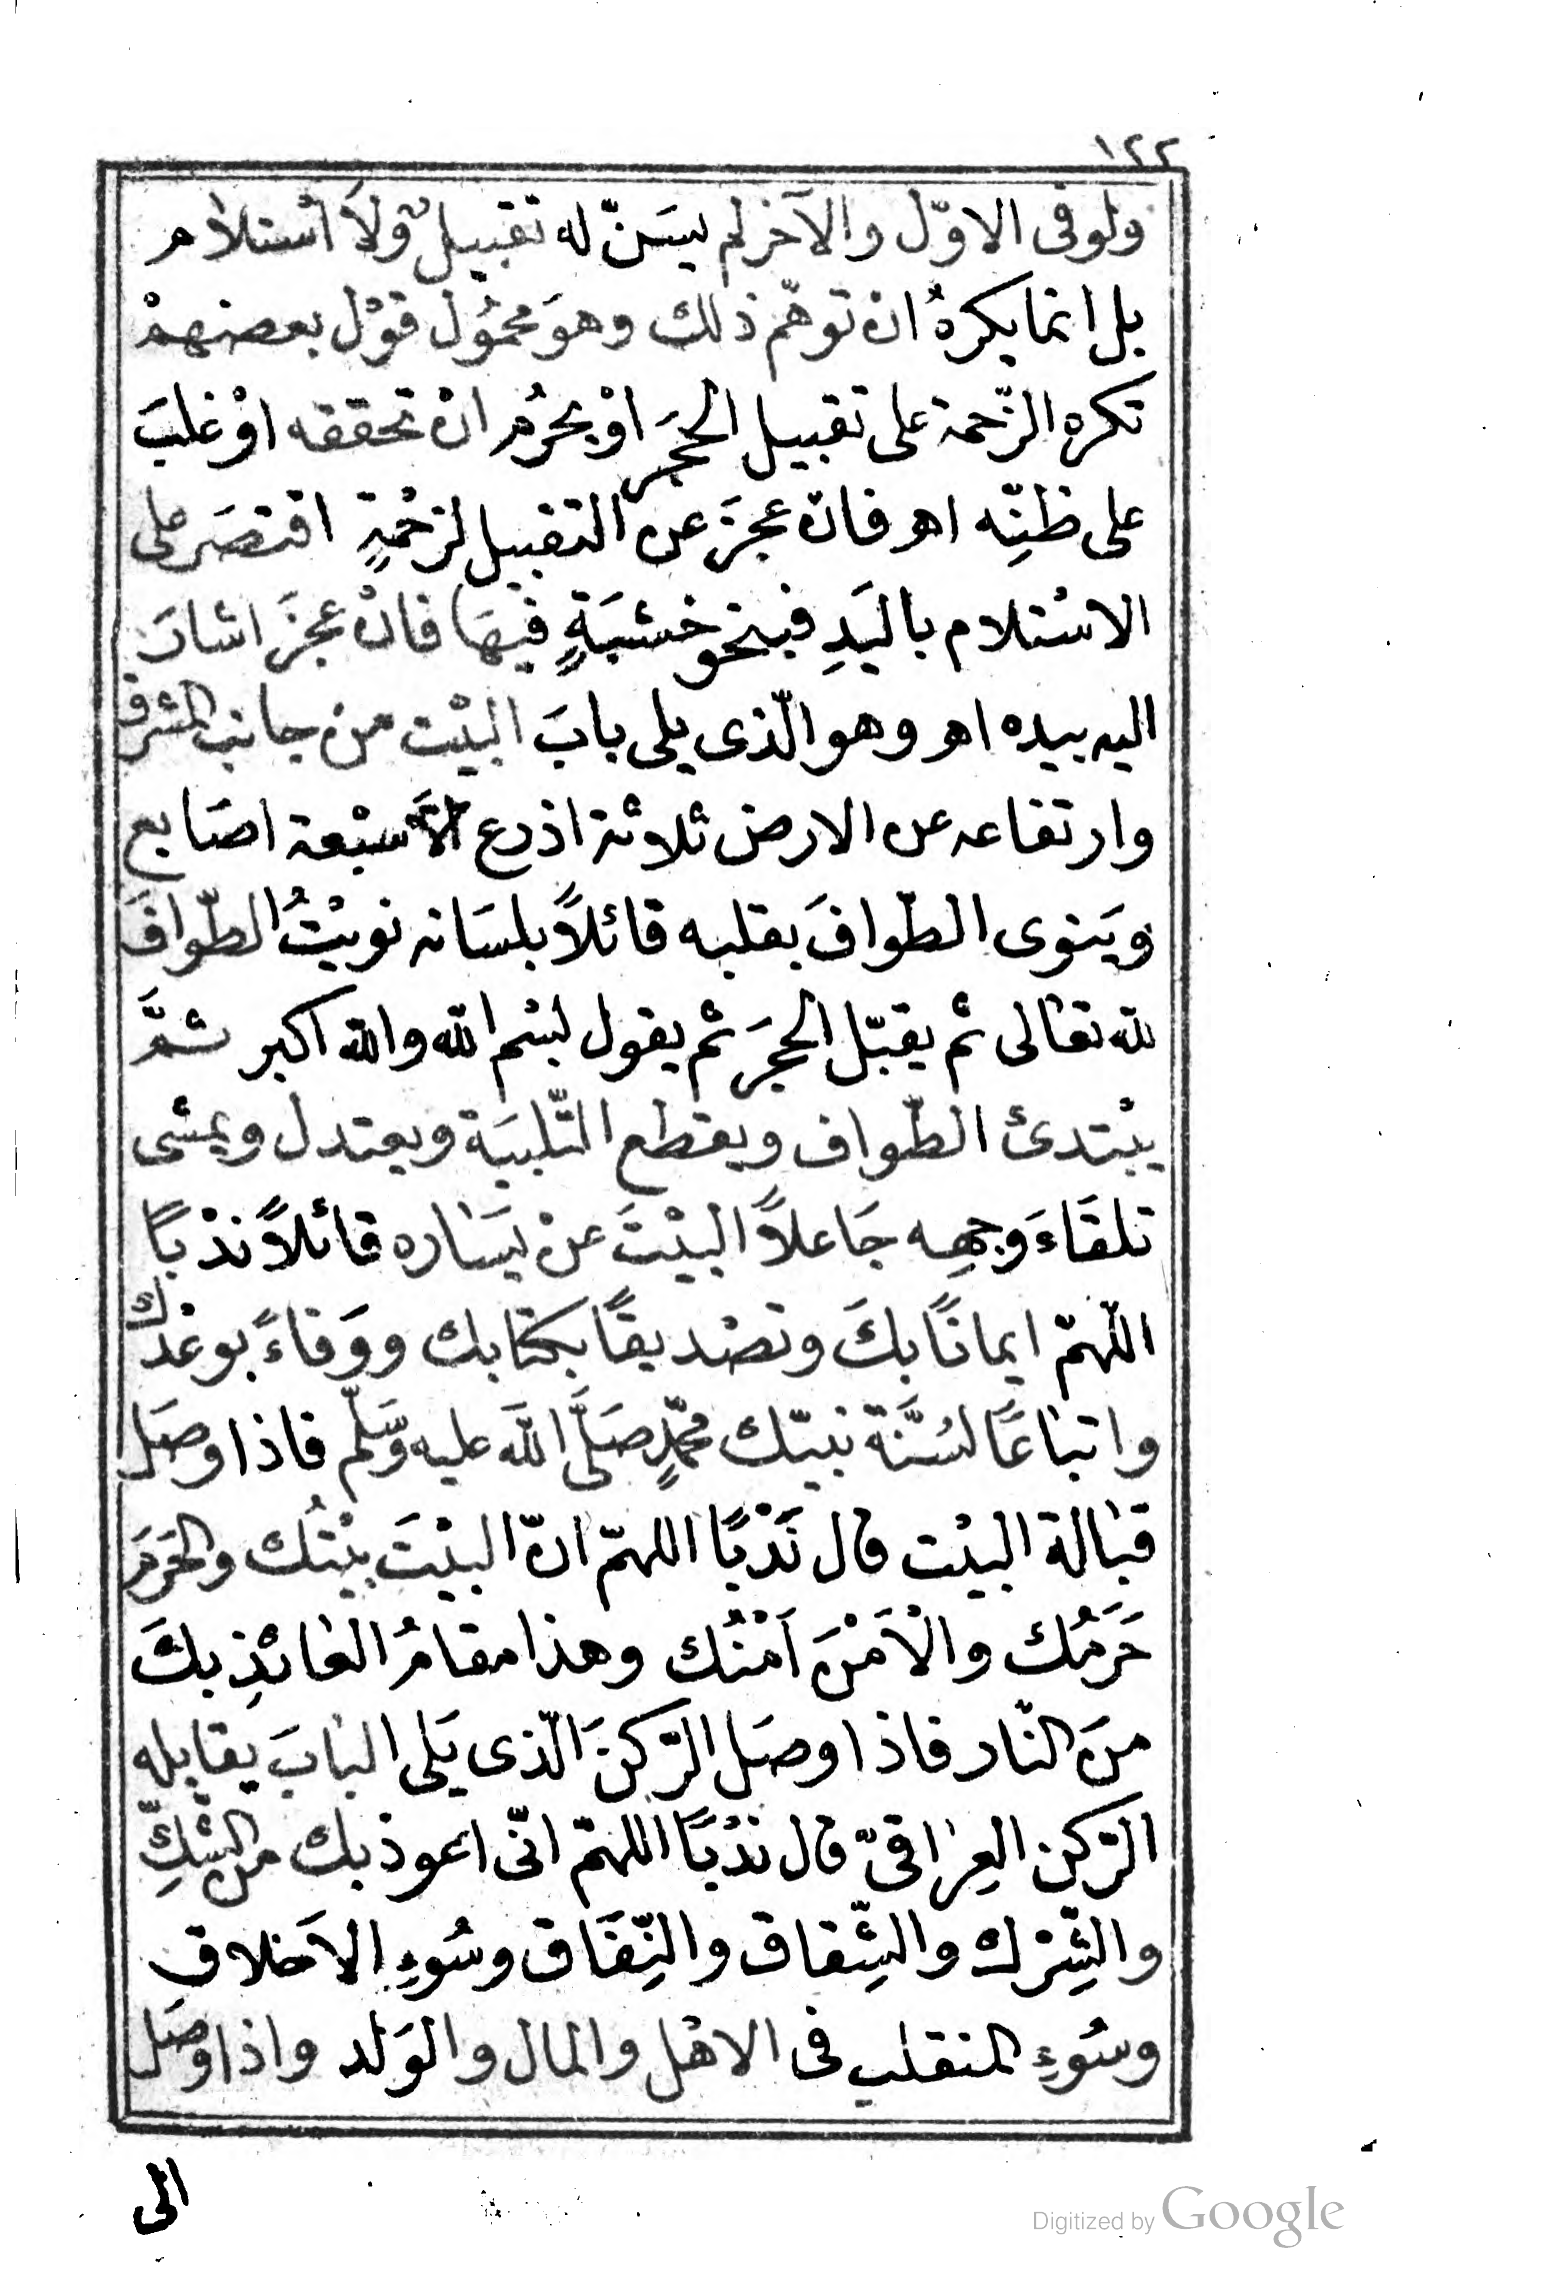 ١٢٢
ولو فى الاوّل والآخر لم يسَنّ له تقبيل ولاَ اسْتلام
بل انما يكرهُ ان توهّم ذلك وهوَ محمُول قوْل بعضهمْ
تكره الزّحمة على تقبيل الحجَر اوْ يحرُم انْ تحققه اوْ غلبَ
على ظنِّه اهـ فان عجزَ عن التقبيل لزحْمةٍ اقتصَر على
الاسْتلام باليَدِ فبنحو خشبَةٍ فيهَا فانْ عجزَ اشارَ
اليه بيده اهـ وهو الّذى يلى بابَ البيْت منْ جانب المشرق
وارتفاعه عن الارض ثلاثة اذرع الاَّ سبْعة اصَابع
ويَنوى الطّوافَ بقلبه قائلاً بلسَانه نويْتُ الطّوافَ
لله تعالى ثم يقبّل الحجَر ثم يقول بسْم الله والله اكبر ثمَّ
يبْتدئ الطّواف ويقطع التّلبيَة ويعتدل ويمشى
تلقَاءَ وجهِه جَاعلاً البيْتَ عنْ يسَاره قائلاً ندْبًا
اللهمّ ايمانًا بكَ وتصْديقًا بكتابك ووَفاءً بوعْدك
واتباعًا لسُنَّة نبيّك محمّدٍ صَلَّى اللهَ عليه وَسّلم فاذا وصَل
قبالة البيْت قال نَدْبًا اللهمّ انّ البيْتَ بيْتُك والحَرَمَ
حَرَمُك والْاَمْنَ اَمْنُك وهذا مقامُ العَائذِ بكَ
منَ النّار فاذا وصَل الرّكنَ الّذى يَلى البابَ يقابله
الرّكن العِراقىّ قال ندْبًا اللهمّ انّى اعوذ بك من الشّكِّ
والشِّرْك والشِّقاق والنِّفَاق وسُوءِ الاَخلاق
وسُوءِ المنقلب فى الاهْل والمال والوَلد واذا وصَل
الى
Digitized by Google